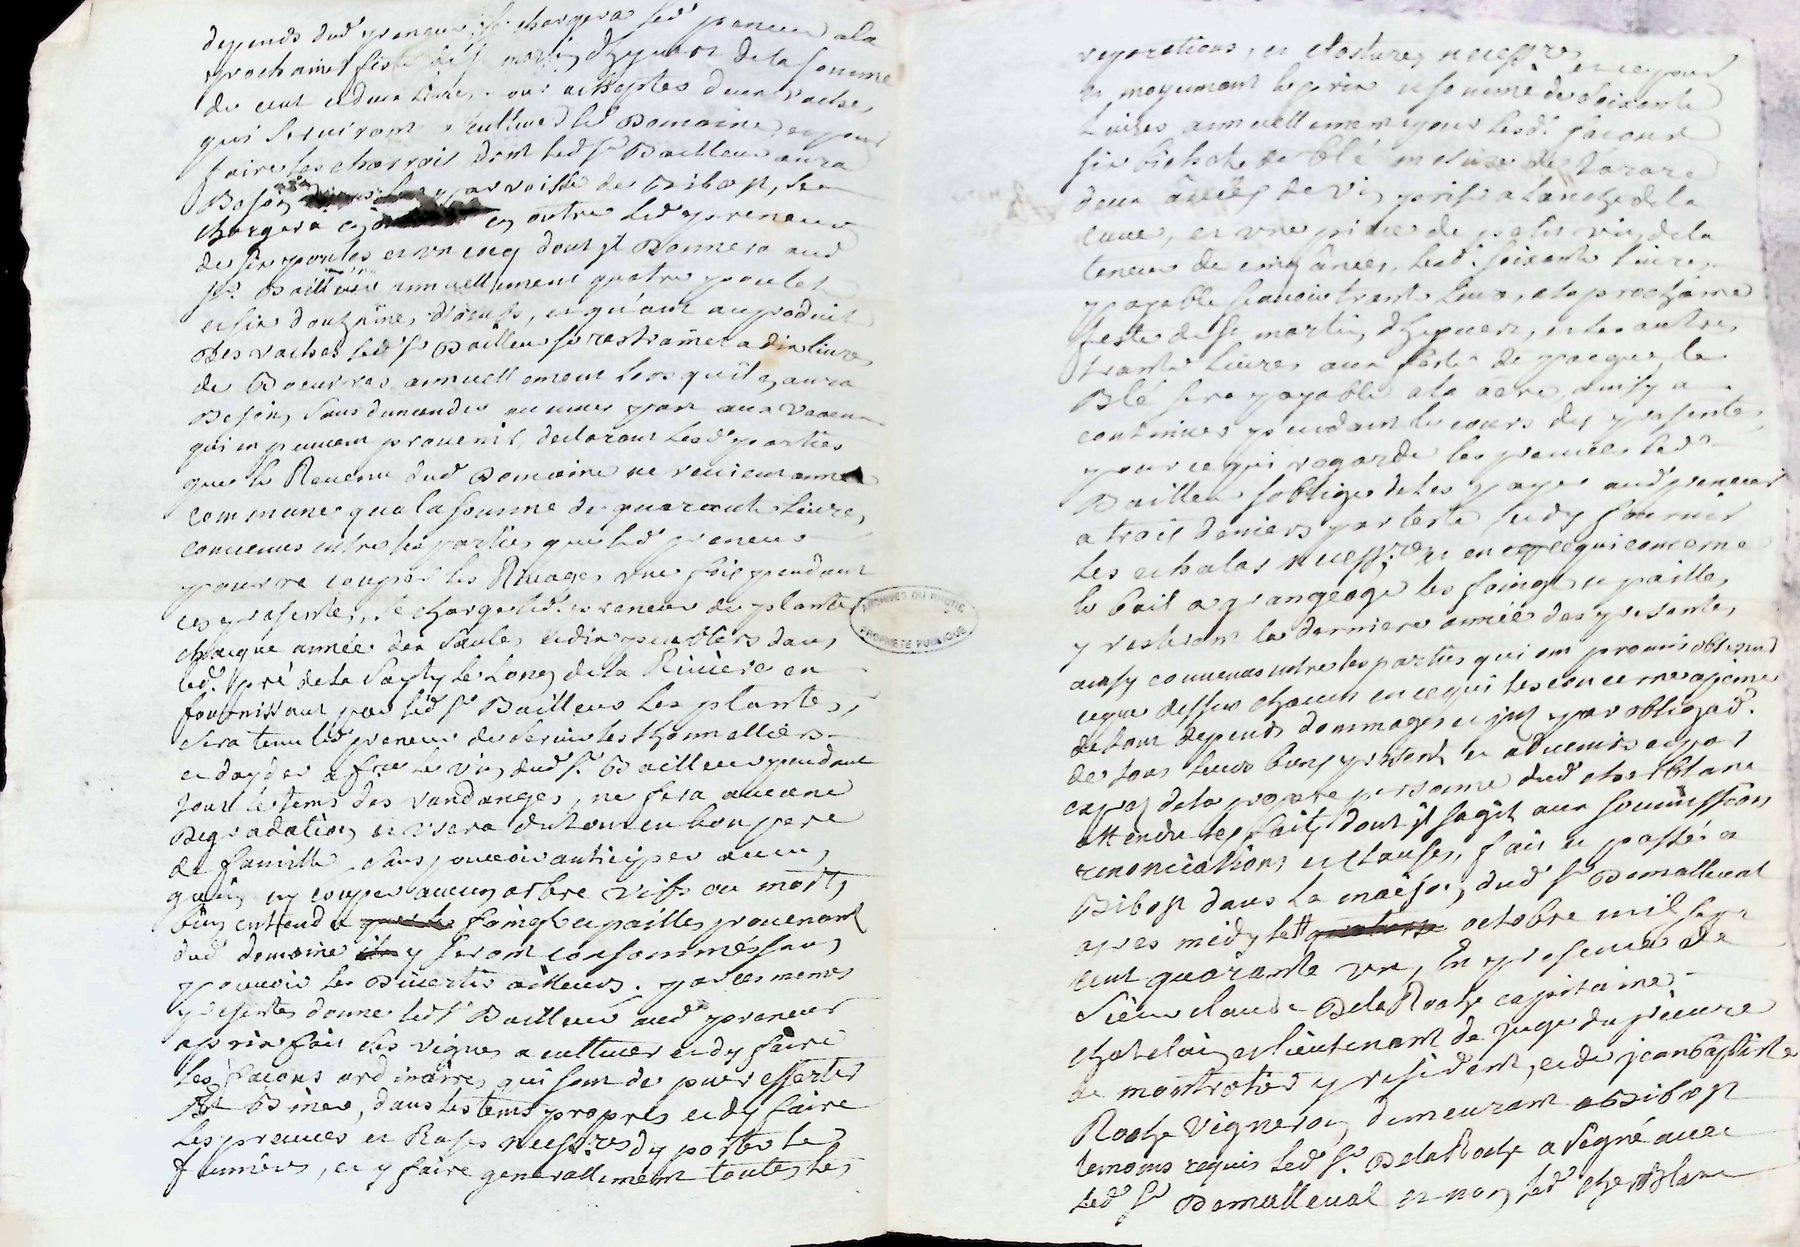 depends dud preneur, se chargera led preneur a la
prochaine feste de st martin d'hyvert de la somme
de cent livres, ou
qui serviront a cultiver le Domaine, et pour
faire les charrois dont led Sr Bailleur aura
Besoin parroisse de Bibost, se
chargera en outre led preneur
de six poules et un coq dont il Donnera aud
Sr Bailleur annuellement quatre poulets
et six douzaines d'oeufs, et qu'ant au produit
des vaches led Sr Bailleur se restraines a dix livres
de Beurres annuellement lors quil y aura
Besoin, sans demander aucunes part aux
qui en peuvent provenir, declarant lesd parties
que le Revenu dud Domaine ne revient année
commune qua la somme de quarante livres,
convenus entre les parties que led preneur
pourra couper les Rivages une fois pendant
ces presentes, se charge led preneur de planter
chaque année dix saules et dix peupliers dans
led pré de la le long de la Riviere en
fournissant par led Sr Bailleur les plantes,
sera tenu led preneur de servir les thonnelliers
et d'ayder a fre le vin dud Sr Bailleur pendant
tout le tems des vandanges, ne fera aucune
Degradation et usera du tout en bon pere
de famille, sans pouvoir anticiper aucun,
ny couper aucun arbre vifs ou morts,
bien entendu que les foings et pailles provenant
dud domaine y seront consommés sans
pouvoir les Divertir ailleurs. par ces memes
presentes donne led Sr Bailleur aud preneur
a prix fait ses vignes a cultiver et d'y faire
les façons ordinaires qui sont de
Biner, dans les tems propres et d'y faire
les preuves et Rases necessres d'y porter les
fumiers, et y faire generallement toutes les
reparations, et clostures necessres, et ce pour
et moyennant le prix et somme de soixante
livres annuellement pour lesd. façons
six bichets de blé mesure de Tarare
deux anées de vin pris a l'anche de la
cuve, et une piece de petit vin de la
teneur de cinq anées, lesd. soixante livres
payable scavoir trente livres, a la prochaine
feste de st martin d'hyvert, et les autres
trente livres aux feste de pacques, le
Blé sera payable a la ainsy a
continuer pendant le cours des presentes,
pour ce qui regarde les preuves led
Bailleur soblige de les payer aud preneur
a trois deniers par teste et d'y fournir
les echalas necessres et en ce qui concerne
le bail a grangeage les foings et paille
resteront la derniere année des presentes,
ainsy convenus entre les parties qui ont promis observer
ceque dessus chacun en ce qui les concerne a peine
de tout depends dommages et jnt par obligaõ.
de tous leurs biens presents et advenirs et par
de la propre personne dud cher Blanc
attendu les faits dont jl sagit aux soumissions
renonciations et clauses, fait et passé a
Bibost dans la maison dud Sr Demalleval
apres midy le octobre mil sept
cent quarante un, En presence de
Sieur claude Dela Roche capitaine
chatelain et lieutenant de juge du prieuré
de montrotier y residant, et de jean baptiste
Roche vigneron demeurant a Bibost
temoins requis led Sr. Dela Roche a signé avec
led Sr Demalleval et non led cher Blanc
ARCHIVES DU RHÔNE
PROPRIÉTÉ PUBLIQUE